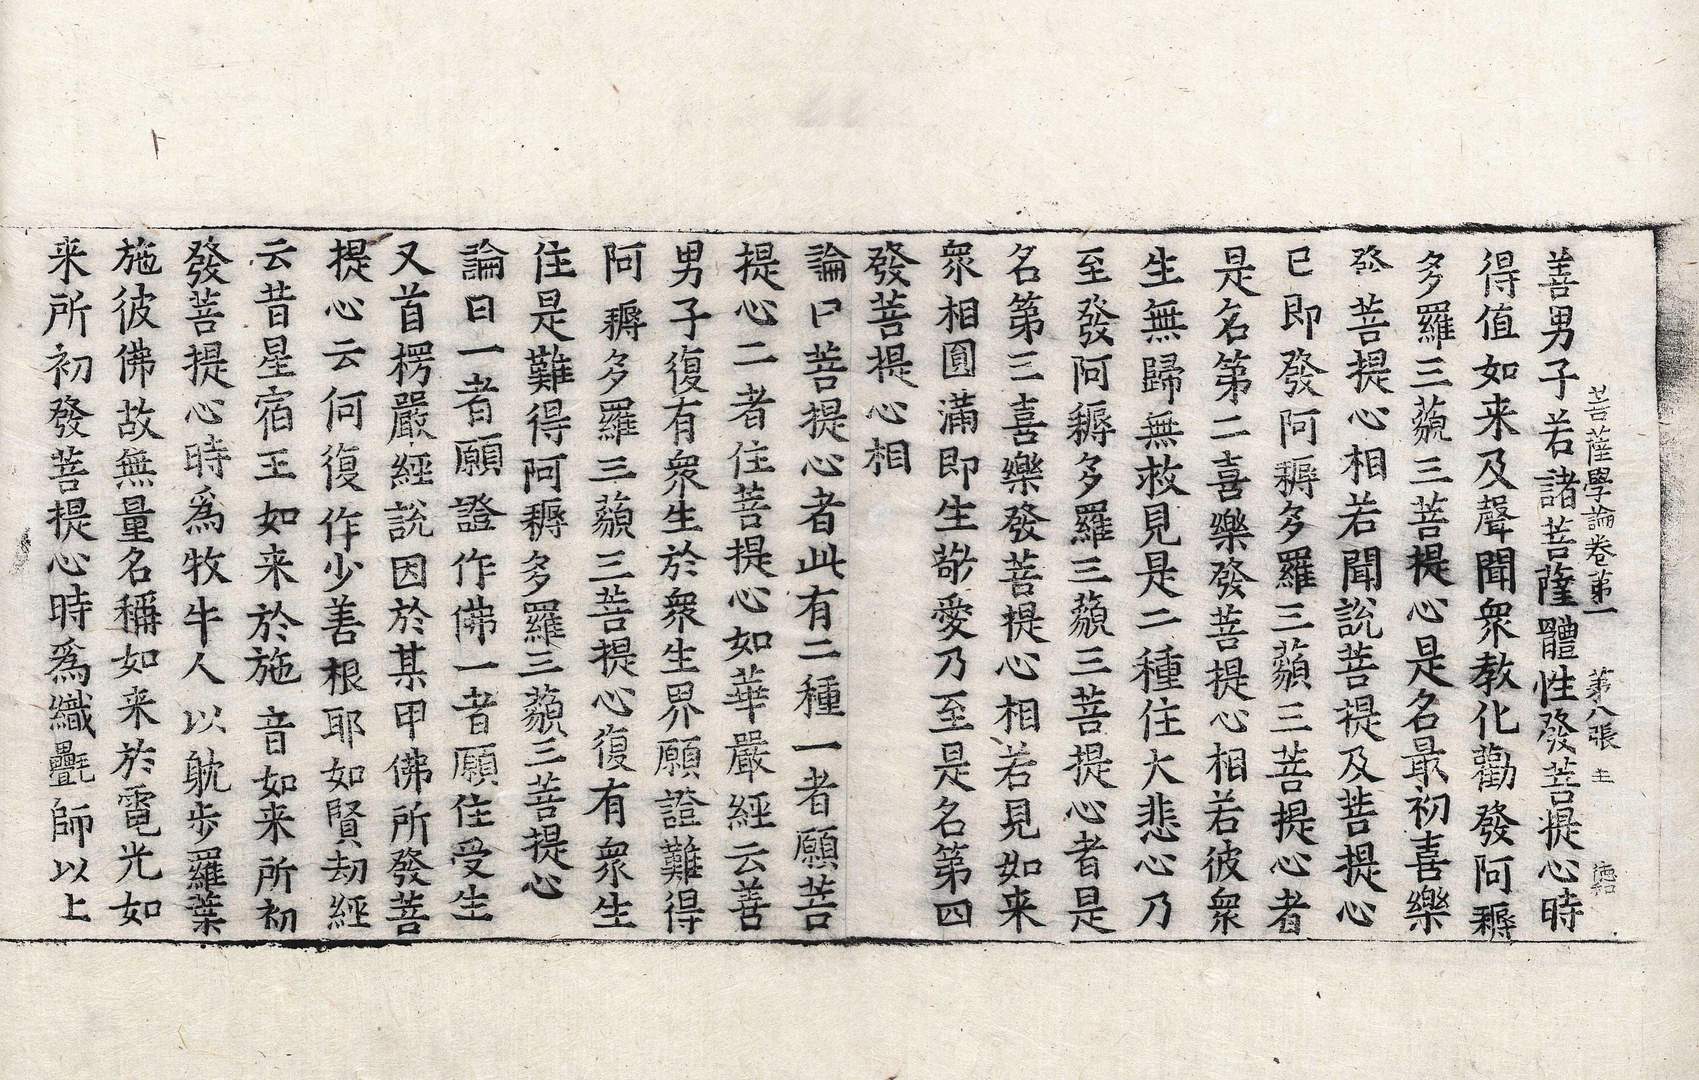 菩薩學論卷第一 第八張 主 德和
善男子若諸菩薩體性發菩提心時
得值如来及聲聞衆教化勸發阿耨
多羅三藐三菩提心是名最初喜樂
發菩提心相若聞說菩提及菩提心
已即發阿耨多羅三藐三菩提心者
是名第二喜樂發菩提心相若彼衆
生無歸無救見是二種住大悲心乃
至發阿耨多羅三藐三菩提心者是
名第三喜樂發菩提心相若見如来
衆相圓滿即生敬愛乃至是名第四
發菩提心相
論曰菩提心者此有二種一者願菩
提心二者住菩提心如華嚴經云善
男子復有衆生於衆生界願證難得
阿耨多羅三藐三菩提心復有衆生
住是難得阿耨多羅三藐三菩提心
論曰一者願證作佛一者願住受生
又首楞嚴經說因於某甲佛所發菩
提心云何復作少善根耶如賢劫經
云昔星宿王如来於施音如来所初
發菩提心時爲牧牛人以躭步羅葉
施彼佛故無量名稱如来於電光如
来所初發菩提心時爲織㲲師以上